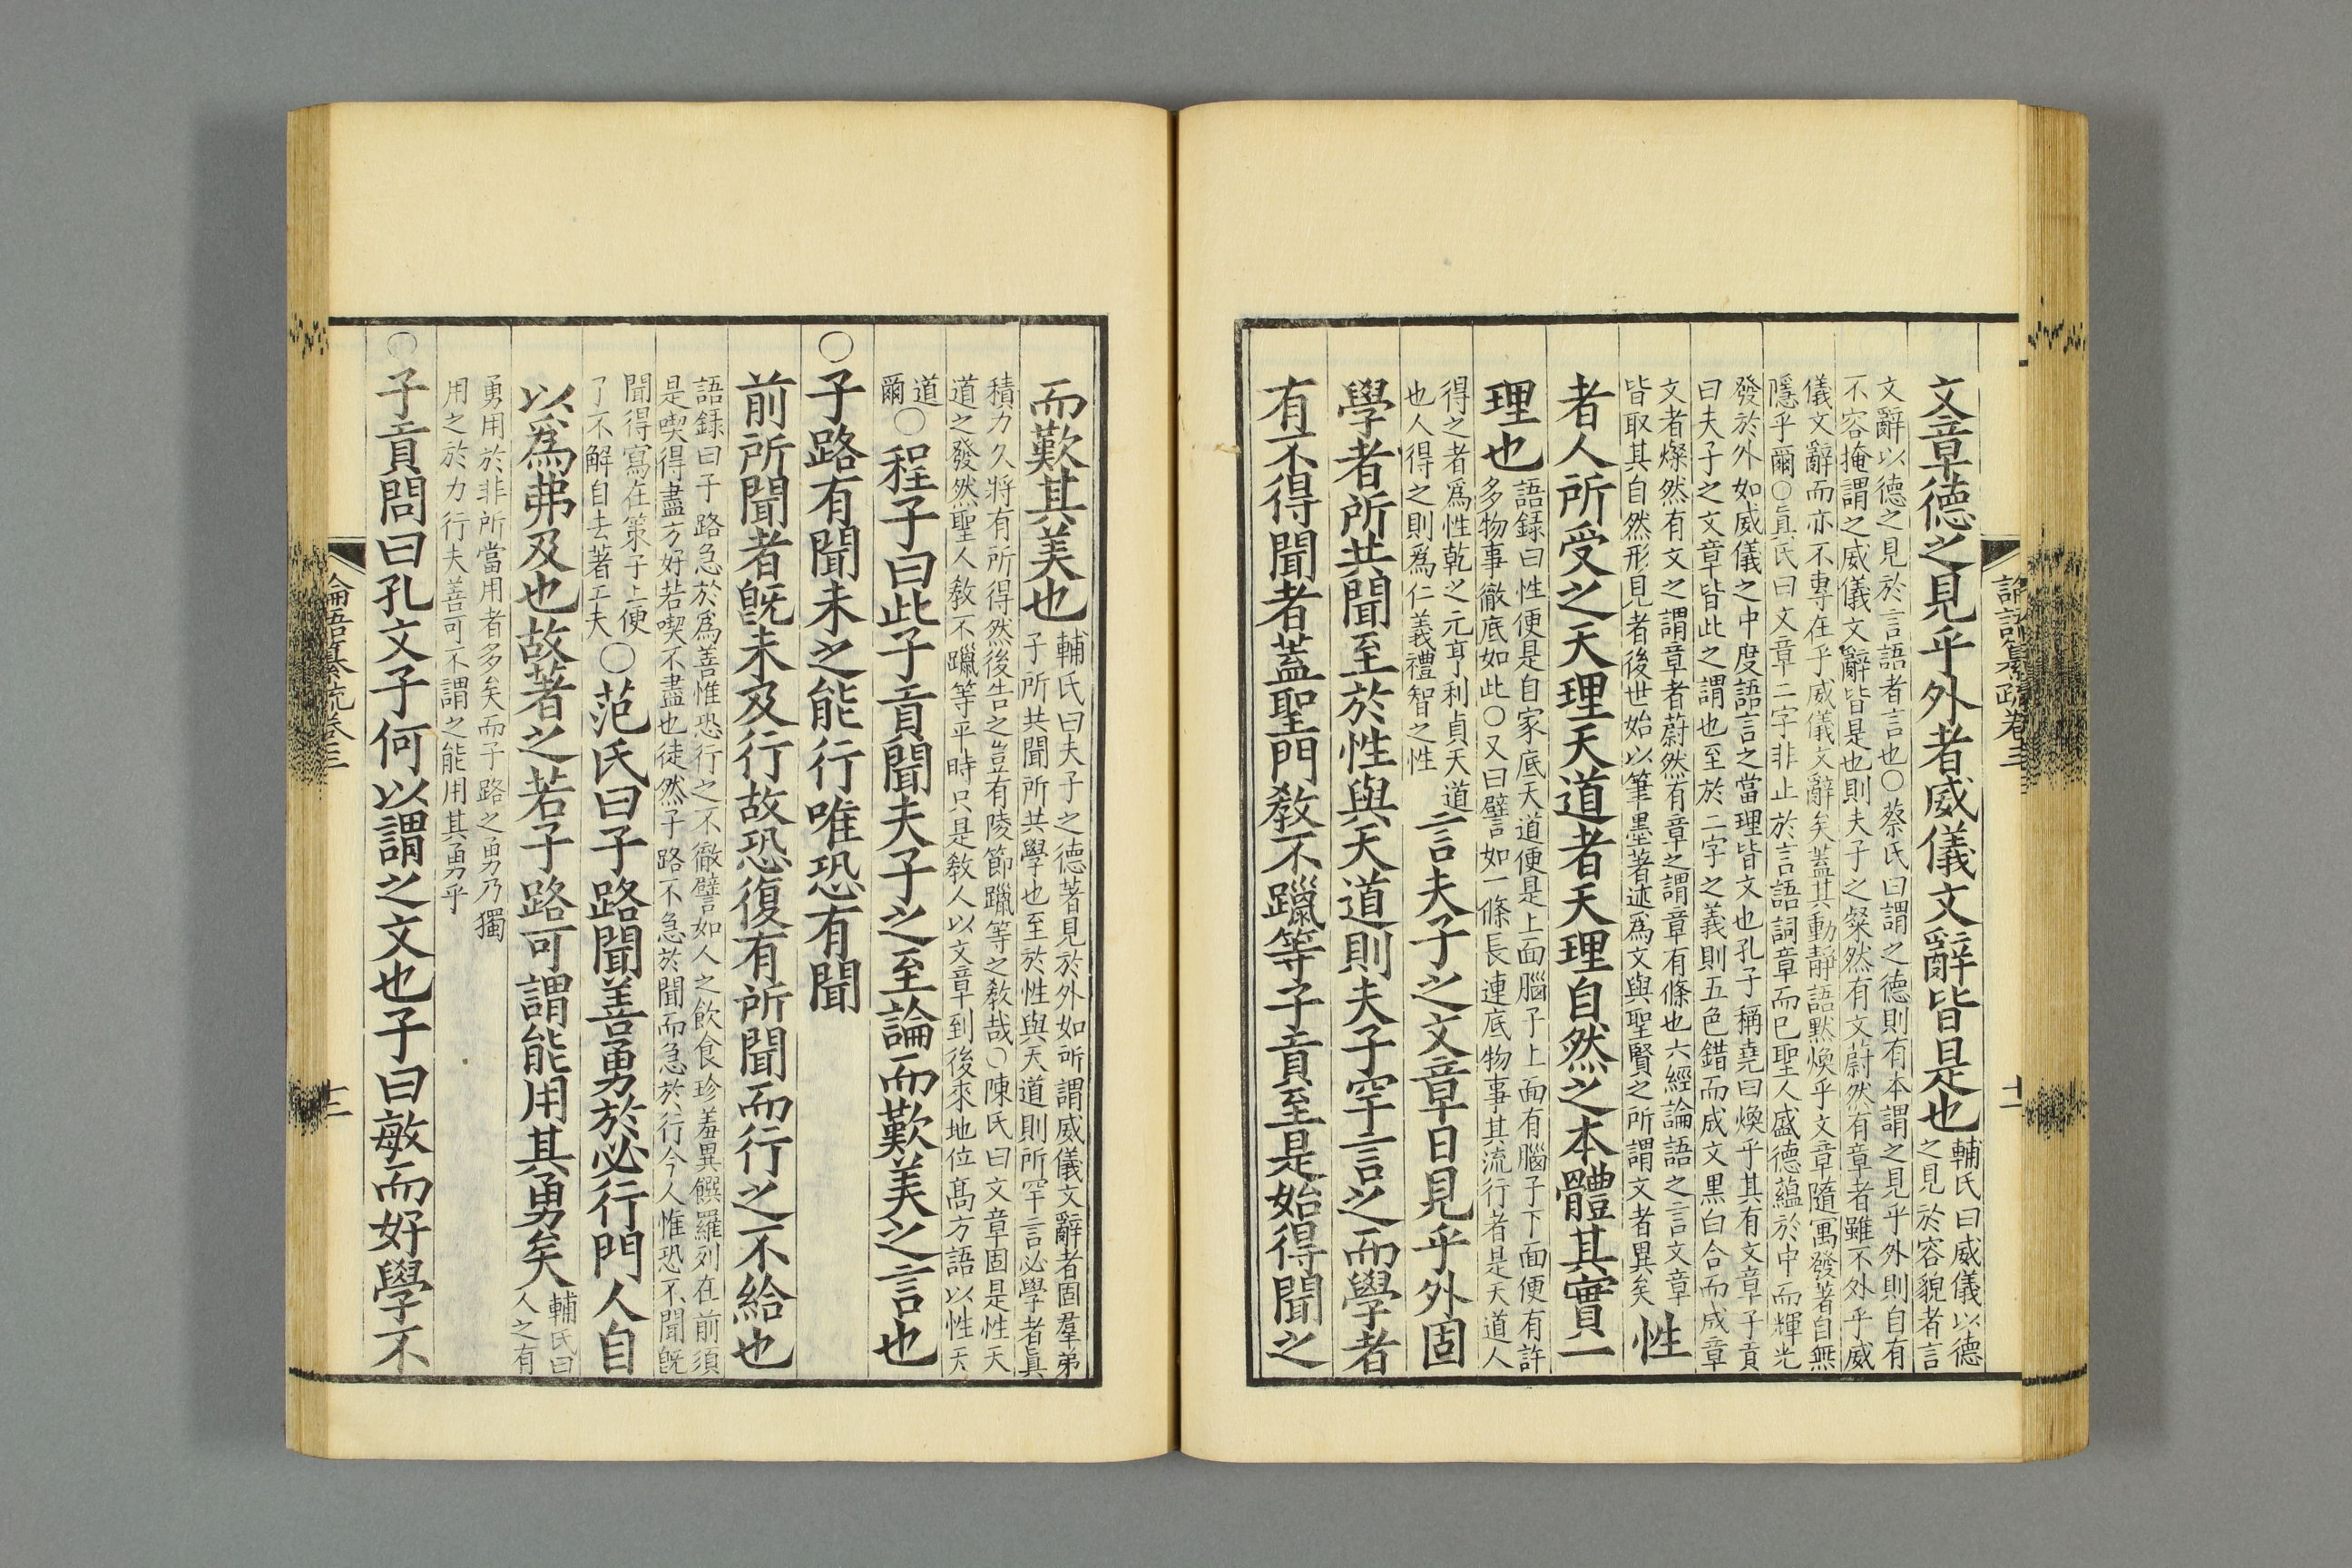 論語纂疏卷三
十一
文章德之見乎外者威儀文辭皆是也
輔氏曰威儀以德
之見於容貌者言
文辭以德之見於言語者言也○蔡氏曰謂之德則有本謂之見乎外則自有
不容掩謂之威儀文辭皆是也則夫子之粲然有文蔚然有章者雖不外乎威
儀文辭而亦不專在乎威儀文辭矣蓋其動靜語默煥乎文章隨寓發著自無
隱乎爾○眞氏曰文章二字非止於言語詞章而已聖人盛德蘊於中而輝光
發於外如威儀之中度語言之當理皆文也孔子稱堯曰煥乎其有文章子貢
曰夫子之文章皆此之謂也至於二字之義則五色錯而成文黑白合而成章
文者燦然有文之謂章者蔚然有章之謂章有條也六經論語之言文章
皆取其自然形見者後世始以筆墨著述爲文與聖賢之所謂文者異矣
性
者人所受之天理天道者天理自然之本體其實一
理也
語録曰性便是自家底天道便是上面腦子上面有腦子下面便有許
多物事徹底如此○又曰譬如一條長連底物事其流行者是天道人
得之者爲性乾之元亨利貞天道
也人得之則爲仁義禮智之性
言夫子之文章日見乎外固
學者所共聞至於性與天道則夫子罕言之而學者
有不得聞者蓋聖門敎不躐等子貢至是始得聞之
而歎其美也
輔氏曰夫子之德著見於外如所謂威儀文辭者固羣弟
子所共聞所共學也至於性與天道則所罕言必學者眞
積力久將有所得然後告之豈有陵節躐等之敎哉○陳氏曰文章固是性天
道之發然聖人敎不躐等平時只是敎人以文章到後來地位髙方語以性天
道
爾
○程子曰此子貢聞夫子之至論而歎美之言也
○子路有聞未之能行唯恐有聞
前所聞者旣未及行故恐復有所聞而行之不給也
語録曰子路急於爲善惟恐行之不徹譬如人之飲食珍羞異饌羅列在前須
是喫得盡方好若喫不盡也徒然子路不急於聞而急於行今人惟恐不聞旣
聞得寫在策子上便
了不解自去著工夫
○范氏曰子路聞善勇於必行門人自
以爲弗及也故著之若子路可謂能用其勇矣
輔氏曰
人之有
勇用於非所當用者多矣而子路之勇乃獨
用之於力行夫善可不謂之能用其勇乎
○子貢問曰孔文子何以謂之文也子曰敏而好學不
論語纂疏卷三
十二